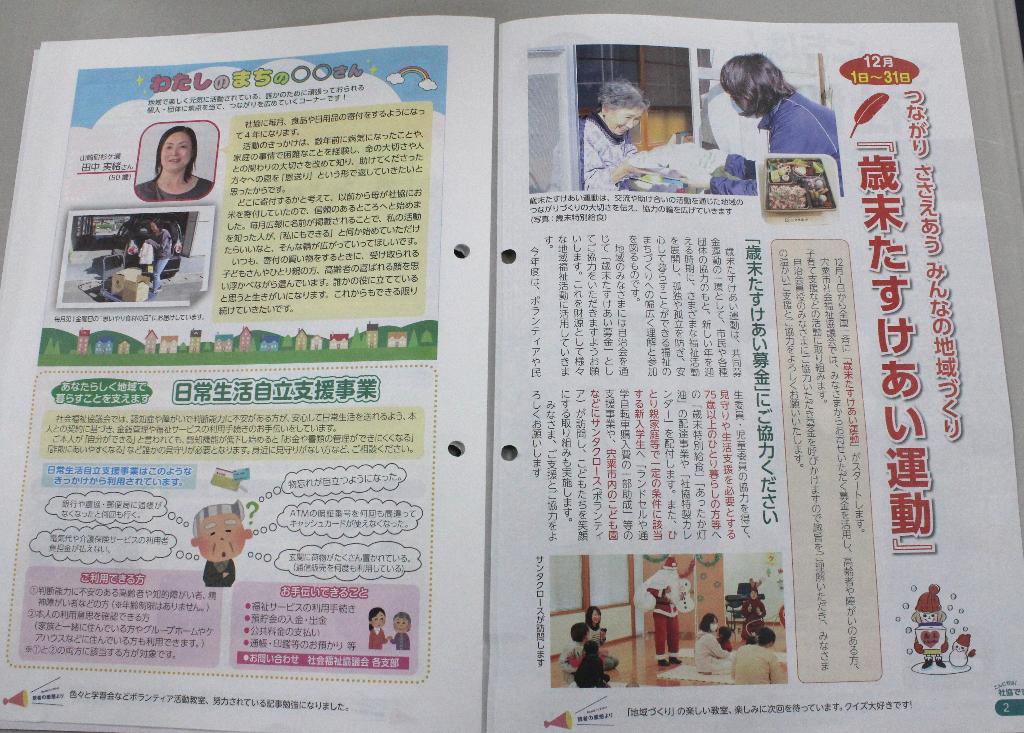 12月
1日～31日
つながり ささえあう みんなの地域づくり
『歳末たすけあい運動』
12月1日から全国一斉に「歳末たすけあい運動」がスタートします。
宍粟市社会福祉協議会では、みなさまからお寄せいただく募金を活用し、高齢者や障がいのある方、
子育て支援などの活動に取り組みます。
自治会員役のみなさまにご協力いただき募金を呼びかけますので趣旨をご理解いただき、みなさま
の温かいご支援とご協力をよろしくお願いいたします。
歳末たすけあい運動は、交流や助け合いの活動を通じた地域の
つながりづくりの大切さを伝え、協力の輪を広げていきます
(写真：歳末特別給食)
「歳末たすけあい募金」にご協力ください
歳末たすけあい運動は、共同募
金運動の一環として、市民や各種
団体の協力のもと、新しい年を迎
える時期に、さまざまな福祉活動
を展開し、孤独や孤立を防ぎ、安
心して暮らすことができる福祉の
まちづくりへの幅広く理解と参加
を図るものです。
地域のみなさまには自治会を通
じて「歳末たすけあい募金」とし
てご協力をいただきますようお願
いします。これを財源として様々
な地域福祉活動に活用していきま
す。
今年度は、ボランティアや民
生委員・児童委員の協力を得て、
見守りや生活支援を必要とする
75歳以上のひとり暮らしの方等へ
の「歳末特別給食」「あったか灯
迎」の配達事業や「社協特製カレ
ンダー」を配付します。また、ひ
とり親家庭等で一定の条件に該当
する新入学生へ「ランドセルや通
学自転車購入費の一部助成」等の
支援事業や、宍粟市内のこども園
などにサンタクロース(ボランティ
ア)が訪問し、こどもたちを笑顔
にする取り組みも実施します。
みなさま、ご支援とご協力をよ
ろしくお願いします
サンタクロースが訪問します
読者の感想より
「地域づくり」の楽しい教室、楽しみに次回を待っています。クイズ大好きです!
2
わたしのまちの○○さん
地域で楽しく元気に活動されている、誰かのために頑張っておられる
個人・団体に焦点を当て、つながりを広めていくコーナーです!
山崎町杉ケ瀬
田中 実緒さん
(50歳)
毎月第1金曜日の"思いやり食材の日"にお届けしています。
社協に毎月、食品や日用品の寄付をするようになっ
て4年になります。
活動のきっかけは、数年前に病気になったことや、
家庭の事情で困難なことを経験し、命の大切さや人
との関わりの大切さを改めて知り、助けてくださった
方々への恩を「恩送り」という形で返していきたいと
思ったからです。
どこに寄付するかと考えて、以前から母が社協にお
米を寄付していたので、信頼のあるところへと始めま
した。毎月広報に名前が掲載されることで、私の活動
を知った人が、「私にもできる」と何か始めていただけ
たらいいなと、そんな輪が広がっていってほしいです。
いつも、寄付の買い物をするときに、受け取られる
子どもさんやひとり親の方、高齢者の喜ばれる顔を思
い浮かべながら選んでいます。誰かの役に立てている
と思うと生きがいになります。これからもできる限り
続けていきたいです。
あなたらしく地域で
暮らすことを支えます
日常生活自立支援事業
社会福祉協議会では、認知症や障がいで判断能力に不安がある方が、安心して日常生活を送れるよう、本
人との契約に基づき、金銭管理や福祉サービスの利用手続きのお手伝いをしています。
ご本人が「自分ができる」と言われても、認知機能が低下し始めると「お金や書類の管理ができにくくなる」
「詐欺にあいやすくなる」など誰かの見守りが必要となります。身近に見守りがない方など、ご相談ください。
日常生活自立支援事業はこのような
きっかけから利用されています。
銀行や農協・郵便局に通帳が
なくなったと何回も行く。
電気代や介護保険サービスの利用者
負担金が払えない。
物忘れが目立つようになった。
ATMの暗証番号を何回も間違って
キャッシュカードが使えなくなった。
玄関に荷物がたくさん置かれている。
(通信販売を何度も利用している)
ご利用できる方
①判断能力に不安のある高齢者や知的障がい者、精
神障がい者などの方(※年齢制限はありません。)
②本人の利用意思を確認できる方
(家族と一緒に住んでいる方やグループホームやケ
アハウスなどに住んでいる方も利用できます。)
※①と②の両方に該当する方が対象です。
お手伝いできること
●福祉サービスの利用手続き
●預貯金の入金・出金
●公共料金の支払い
●通帳・印鑑等のお預かり 等
●お問い合わせ 社会福祉協議会 各支部
読者の感想より
色々と学習会などボランティア活動教室、努力されている記事勉強になりました。